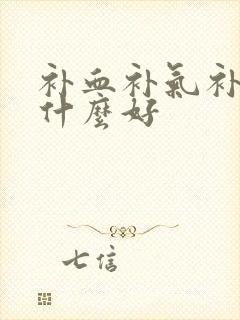 补血补氣补
什麼好
七信